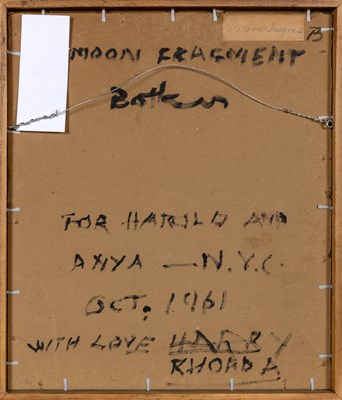 B
MOON FRAGMENT
FOR HAROLD AND
ANYA — N.Y.C.
OCT, 1961
WITH LOVE HARRY
RHONDA